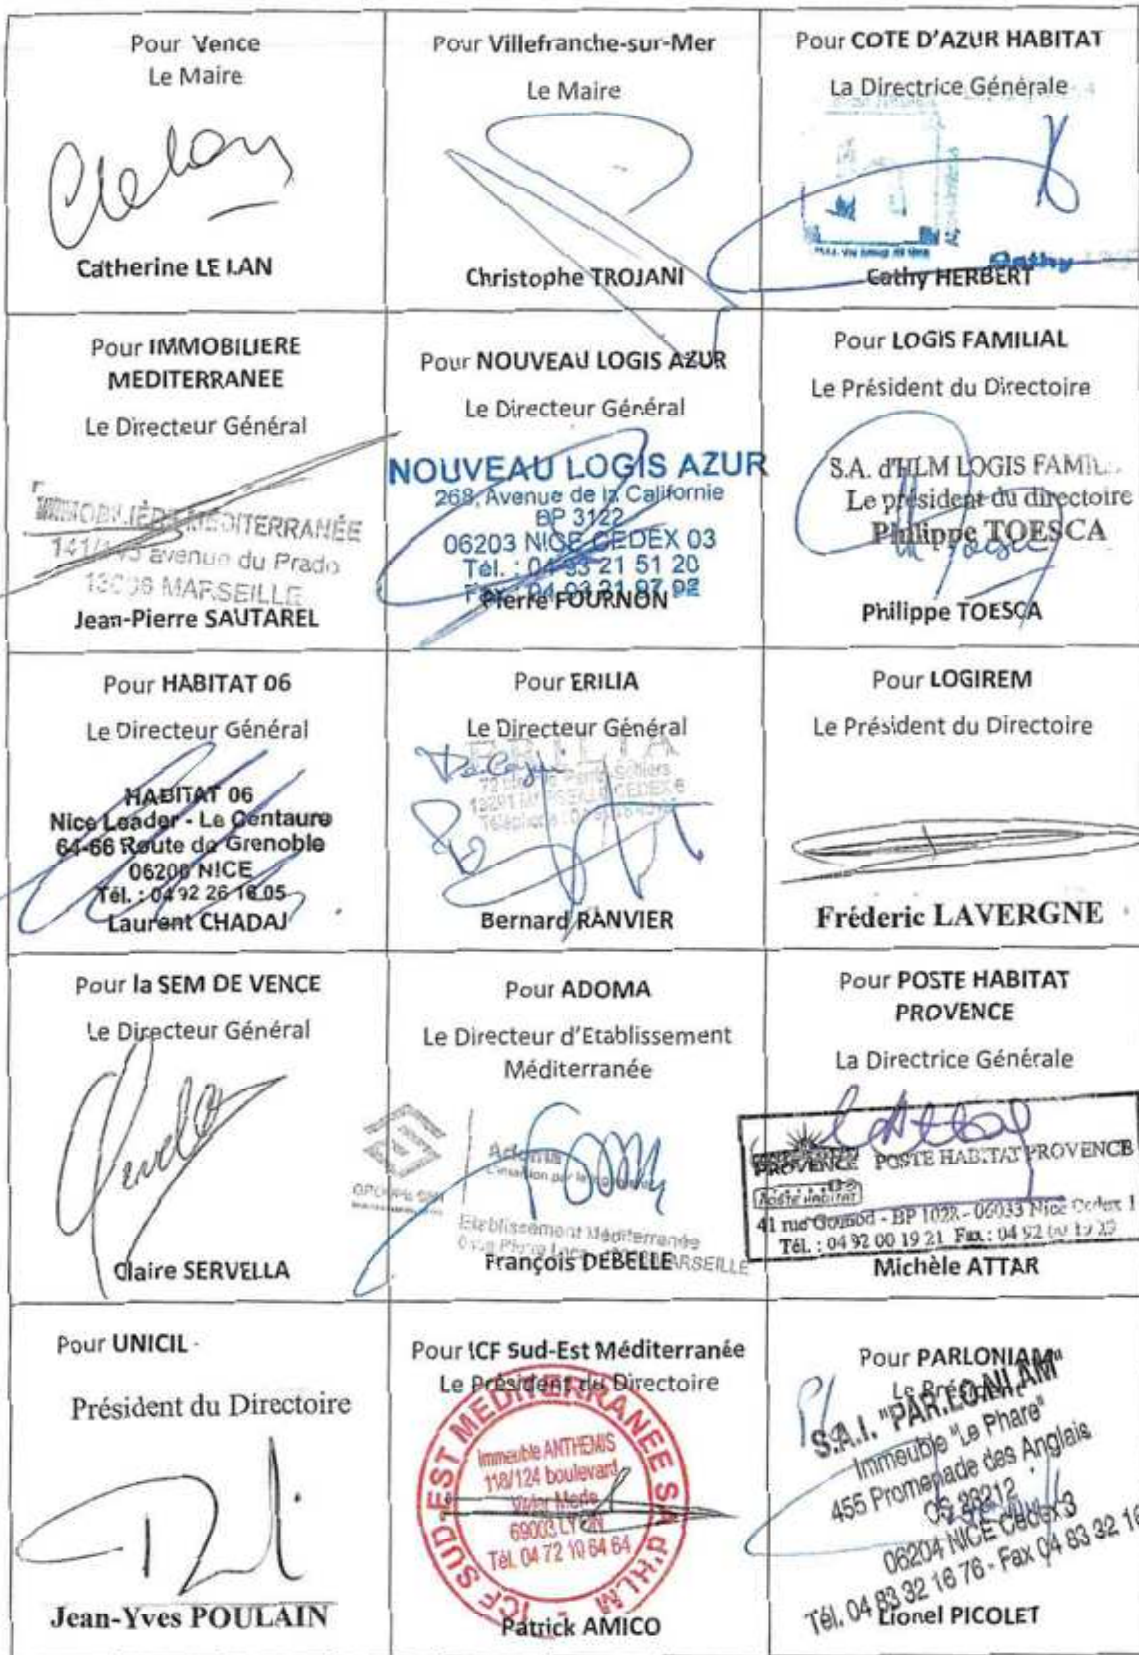 Pour Vence
Le Maire
Catherine LE LAN
Pour Villefranche-sur-Mer
Le Maire
Christophe TROJANI
Pour COTE D'AZUR HABITAT
La Directrice Générale
Cathy
Cathy HERBERT
Pour IMMOBILIERE
MEDITERRANEE
Le Directeur Général
IMMOBILIÈRE MÉDITERRANÉE
avenue du Prado
MARSEILLE
Jean-Pierre SAUTAREL
Pour NOUVEAU LOGIS AZUR
Le Directeur Général
NOUVEAU LOGIS AZUR
268, Avenue de la Californie
BP 3122
06203 NICE CEDEX 03
Tél. : 04 93 21 51 20
Fax : 04 93 21 97 92
Pierre FOURNON
Pour LOGIS FAMILIAL
Le Président du Directoire
S.A. d'HLM LOGIS FAMIL
Le président du directoire
Philippe TOESCA
Philippe TOESCA
Pour HABITAT 06
Le Directeur Général
HABITAT 06
Nice Leader - Le Centaure
64-66 Route de Grenoble
06200 NICE
Tél. : 04 92 26 16 05
Laurent CHADAJ
Pour ERILIA
Le Directeur Général
ERILIA
Bernard RANVIER
Pour LOGIREM
Le Président du Directoire
Fréderic LAVERGNE
Pour la SEM DE VENCE
Le Directeur Général
Claire SERVELLA
Pour ADOMA
Le Directeur d'Etablissement
Méditerranée
Adoma
L'insertion par le logement
Etablissement Méditerranée
MARSEILLE
François DEBELLE
Pour POSTE HABITAT
PROVENCE
La Directrice Générale
PROVENCE
POSTE HABITAT
POSTE HABITAT PROVENCE
41 rue Gounod - BP 1028 - 06033 Nice Cedex 1
Tél. : 04 92 00 19 21 Fax : 04 92 00 19 29
Michèle ATTAR
Pour UNICIL
Président du Directoire
Jean-Yves POULAIN
Pour ICF Sud-Est Méditerranée
Le Président du Directoire
ICF SUD-EST MEDITERRANEE SA d'HLM
Immeuble ANTHEMIS
118/124 boulevard
Vivier Merle
69003 LYON
Tél. 04 72 10 64 64
Patrick AMICO
Pour PARLONIAM
Le Président
S.A.I. "PAR.LO.NI.AM"
Immeuble "Le Phare"
455 Promenade des Anglais
06204 NICE Cedex 3
Tél. 04 83 32 16 76 - Fax 04 83 32 16
Lionel PICOLET